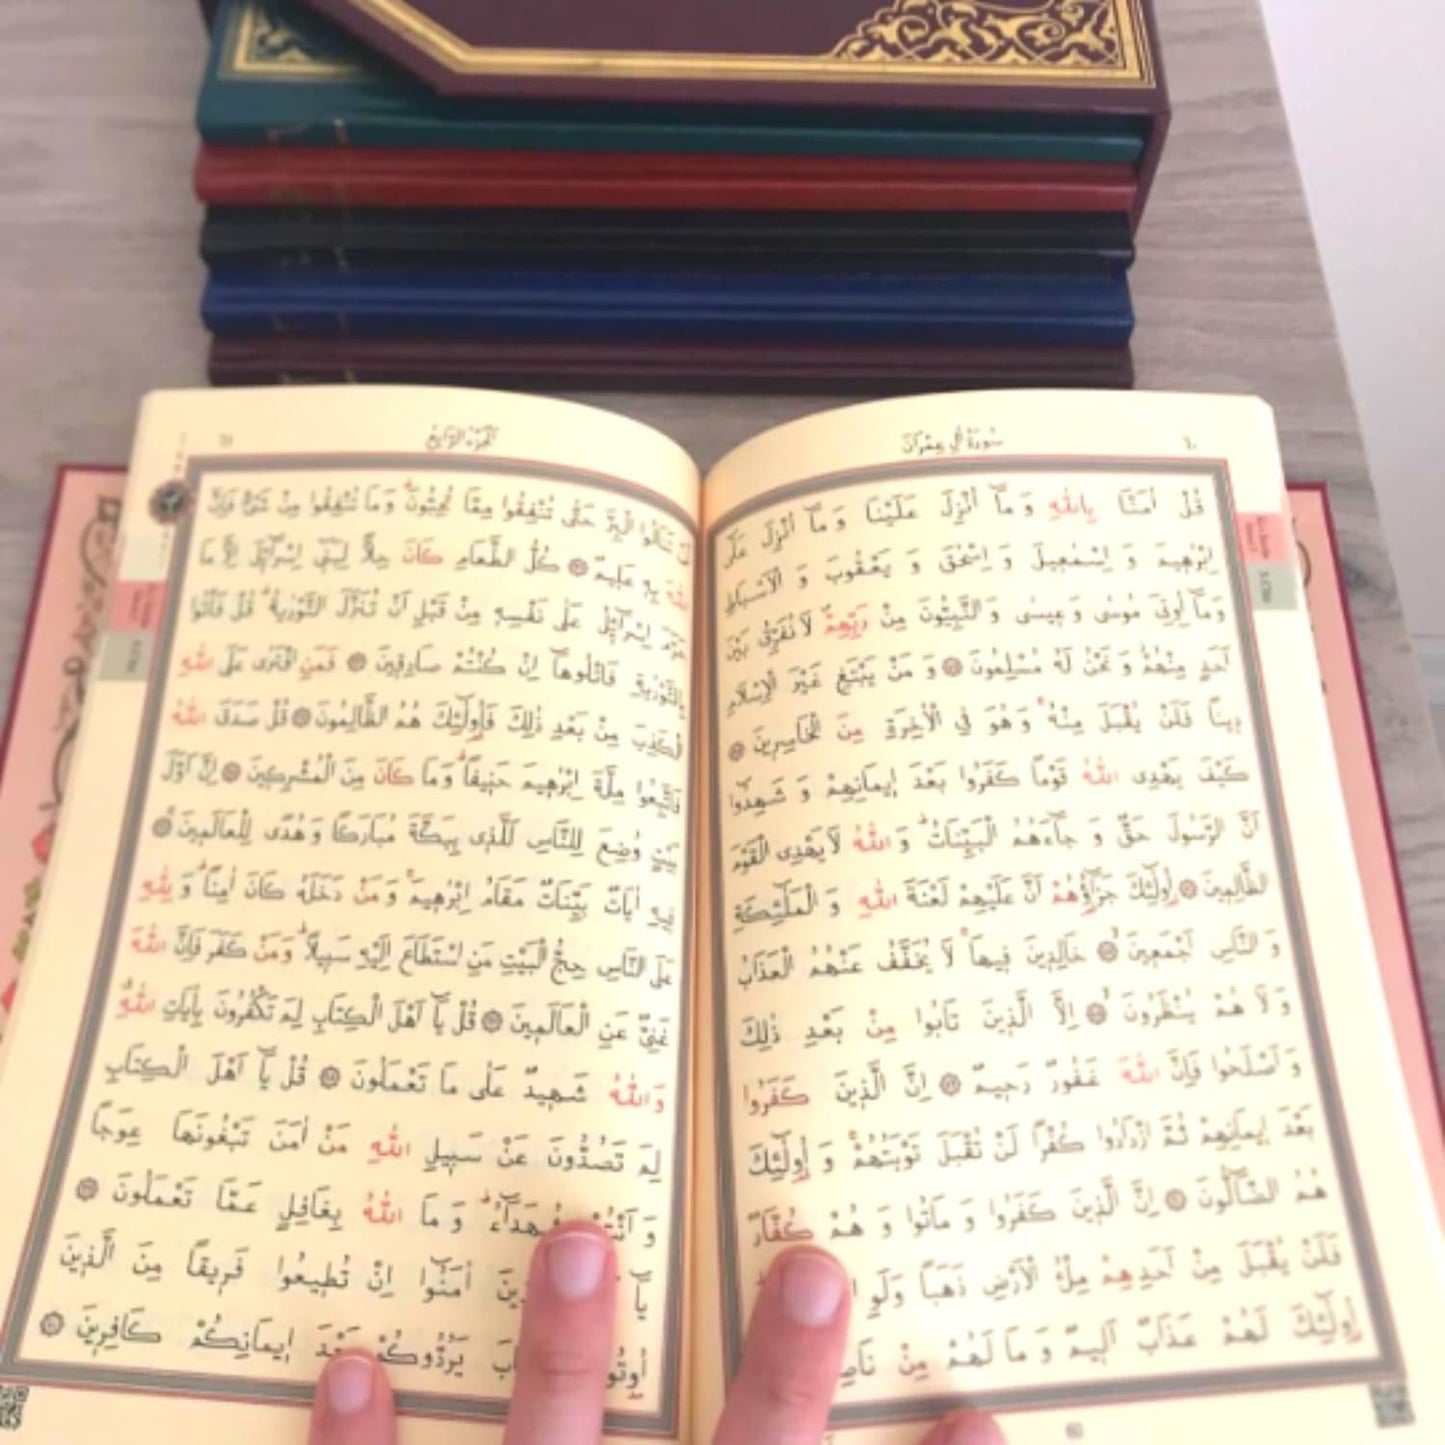 سُورَةُ اٰلِ عِمْرٰنَ
٦٠
قُلْ اٰمَنَّا بِاللّٰهِ وَمَٓا اُنْزِلَ عَلَيْنَا وَمَٓا اُنْزِلَ عَلٰٓى
اِبْرٰهٖيمَ وَاِسْمٰعٖيلَ وَاِسْحٰقَ وَيَعْقُوبَ وَالْاَسْبَاطِ
وَمَٓا اُوتِىَ مُوسٰى وَعٖيسٰى وَالنَّبِيُّونَ مِنْ رَبِّهِمْ لَا نُفَرِّقُ بَيْنَ
اَحَدٍ مِنْهُمْ وَنَحْنُ لَهُ مُسْلِمُونَ وَمَنْ يَبْتَغِ غَيْرَ الْاِسْلَامِ
دٖينًا فَلَنْ يُقْبَلَ مِنْهُ وَهُوَ فِى الْاٰخِرَةِ مِنَ الْخَاسِرٖينَ
كَيْفَ يَهْدِى اللّٰهُ قَوْمًا كَفَرُوا بَعْدَ اٖيمَانِهِمْ وَشَهِدُٓوا
اَنَّ الرَّسُولَ حَقٌّ وَجَٓاءَهُمُ الْبَيِّنَاتُ وَاللّٰهُ لَا يَهْدِى الْقَوْمَ
الظَّالِمٖينَ اُولٰٓئِكَ جَزَٓاؤُهُمْ اَنَّ عَلَيْهِمْ لَعْنَةَ اللّٰهِ وَالْمَلٰٓئِكَةِ
وَالنَّاسِ اَجْمَعٖينَ خَالِدٖينَ فٖيهَا لَا يُخَفَّفُ عَنْهُمُ الْعَذَابُ
وَلَا هُمْ يُنْظَرُونَ اِلَّا الَّذٖينَ تَابُوا مِنْ بَعْدِ ذٰلِكَ
وَاَصْلَحُوا فَاِنَّ اللّٰهَ غَفُورٌ رَحٖيمٌ اِنَّ الَّذٖينَ كَفَرُوا
بَعْدَ اٖيمَانِهِمْ ثُمَّ ازْدَادُوا كُفْرًا لَنْ تُقْبَلَ تَوْبَتُهُمْ وَاُولٰٓئِكَ
هُمُ الضَّٓالُّونَ اِنَّ الَّذٖينَ كَفَرُوا وَمَاتُوا وَهُمْ كُفَّارٌ
فَلَنْ يُقْبَلَ مِنْ اَحَدِهِمْ مِلْءُ الْاَرْضِ ذَهَبًا وَلَوِ
اُولٰٓئِكَ لَهُمْ عَذَابٌ اَلٖيمٌ وَمَا لَهُمْ مِنْ
60
اَلْجُزْءُ الرَّابِعُ
لَنْ تَنَالُوا الْبِرَّ حَتّٰى تُنْفِقُوا مِمَّا تُحِبُّونَ وَمَا تُنْفِقُوا مِنْ شَىْءٍ فَاِنَّ
اللّٰهَ بِهٖ عَلٖيمٌ كُلُّ الطَّعَامِ كَانَ حِلًّا لِبَنٖٓى اِسْرَٓائٖلَ اِلَّا مَا
حَرَّمَ اِسْرَٓائٖلُ عَلٰى نَفْسِهٖ مِنْ قَبْلِ اَنْ تُنَزَّلَ التَّوْرٰيةُ قُلْ فَأْتُوا
بِالتَّوْرٰيةِ فَاتْلُوهَٓا اِنْ كُنْتُمْ صَادِقٖينَ فَمَنِ افْتَرٰى عَلَى اللّٰهِ
الْكَذِبَ مِنْ بَعْدِ ذٰلِكَ فَاُولٰٓئِكَ هُمُ الظَّالِمُونَ قُلْ صَدَقَ اللّٰهُ
فَاتَّبِعُوا مِلَّةَ اِبْرٰهٖيمَ حَنٖيفًا وَمَا كَانَ مِنَ الْمُشْرِكٖينَ اِنَّ اَوَّلَ
بَيْتٍ وُضِعَ لِلنَّاسِ لَلَّذٖى بِبَكَّةَ مُبَارَكًا وَهُدًى لِلْعَالَمٖينَ
فٖيهِ اٰيَاتٌ بَيِّنَاتٌ مَقَامُ اِبْرٰهٖيمَ وَمَنْ دَخَلَهُ كَانَ اٰمِنًا وَلِلّٰهِ
عَلَى النَّاسِ حِجُّ الْبَيْتِ مَنِ اسْتَطَاعَ اِلَيْهِ سَبٖيلًا وَمَنْ كَفَرَ فَاِنَّ اللّٰهَ
غَنِىٌّ عَنِ الْعَالَمٖينَ قُلْ يَٓا اَهْلَ الْكِتَابِ لِمَ تَكْفُرُونَ بِاٰيَاتِ اللّٰهِ
وَاللّٰهُ شَهٖيدٌ عَلٰى مَا تَعْمَلُونَ قُلْ يَٓا اَهْلَ الْكِتَابِ
لِمَ تَصُدُّونَ عَنْ سَبٖيلِ اللّٰهِ مَنْ اٰمَنَ تَبْغُونَهَا عِوَجًا
وَاَنْتُمْ شُهَدَٓاءُ وَمَا اللّٰهُ بِغَافِلٍ عَمَّا تَعْمَلُونَ
يَٓا اٰمَنُٓوا اِنْ تُطٖيعُوا فَرٖيقًا مِنَ الَّذٖينَ
يَرُدُّوكُمْ بَعْدَ اٖيمَانِكُمْ كَافِرٖينَ